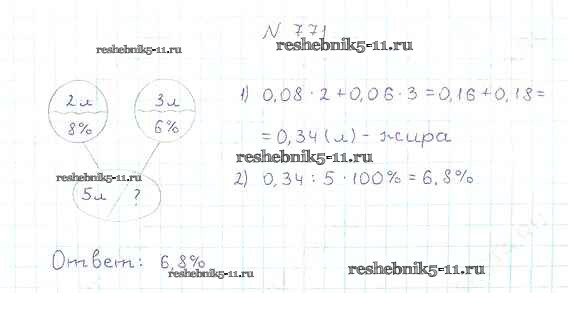 N 771
reshebnik5-11.ru
reshebnik5-11.ru
2 л
8%
3 л
6%
1) 0,08 · 2 + 0,06 · 3 = 0,16 + 0,18 =
= 0,34 (л) - жира
reshebnik5-11.ru
reshebnik5-11.ru
5 л / ?
2) 0,34 : 5 · 100% = 6,8%
Ответ: 6,8%
reshebnik5-11.ru
reshebnik5-11.ru